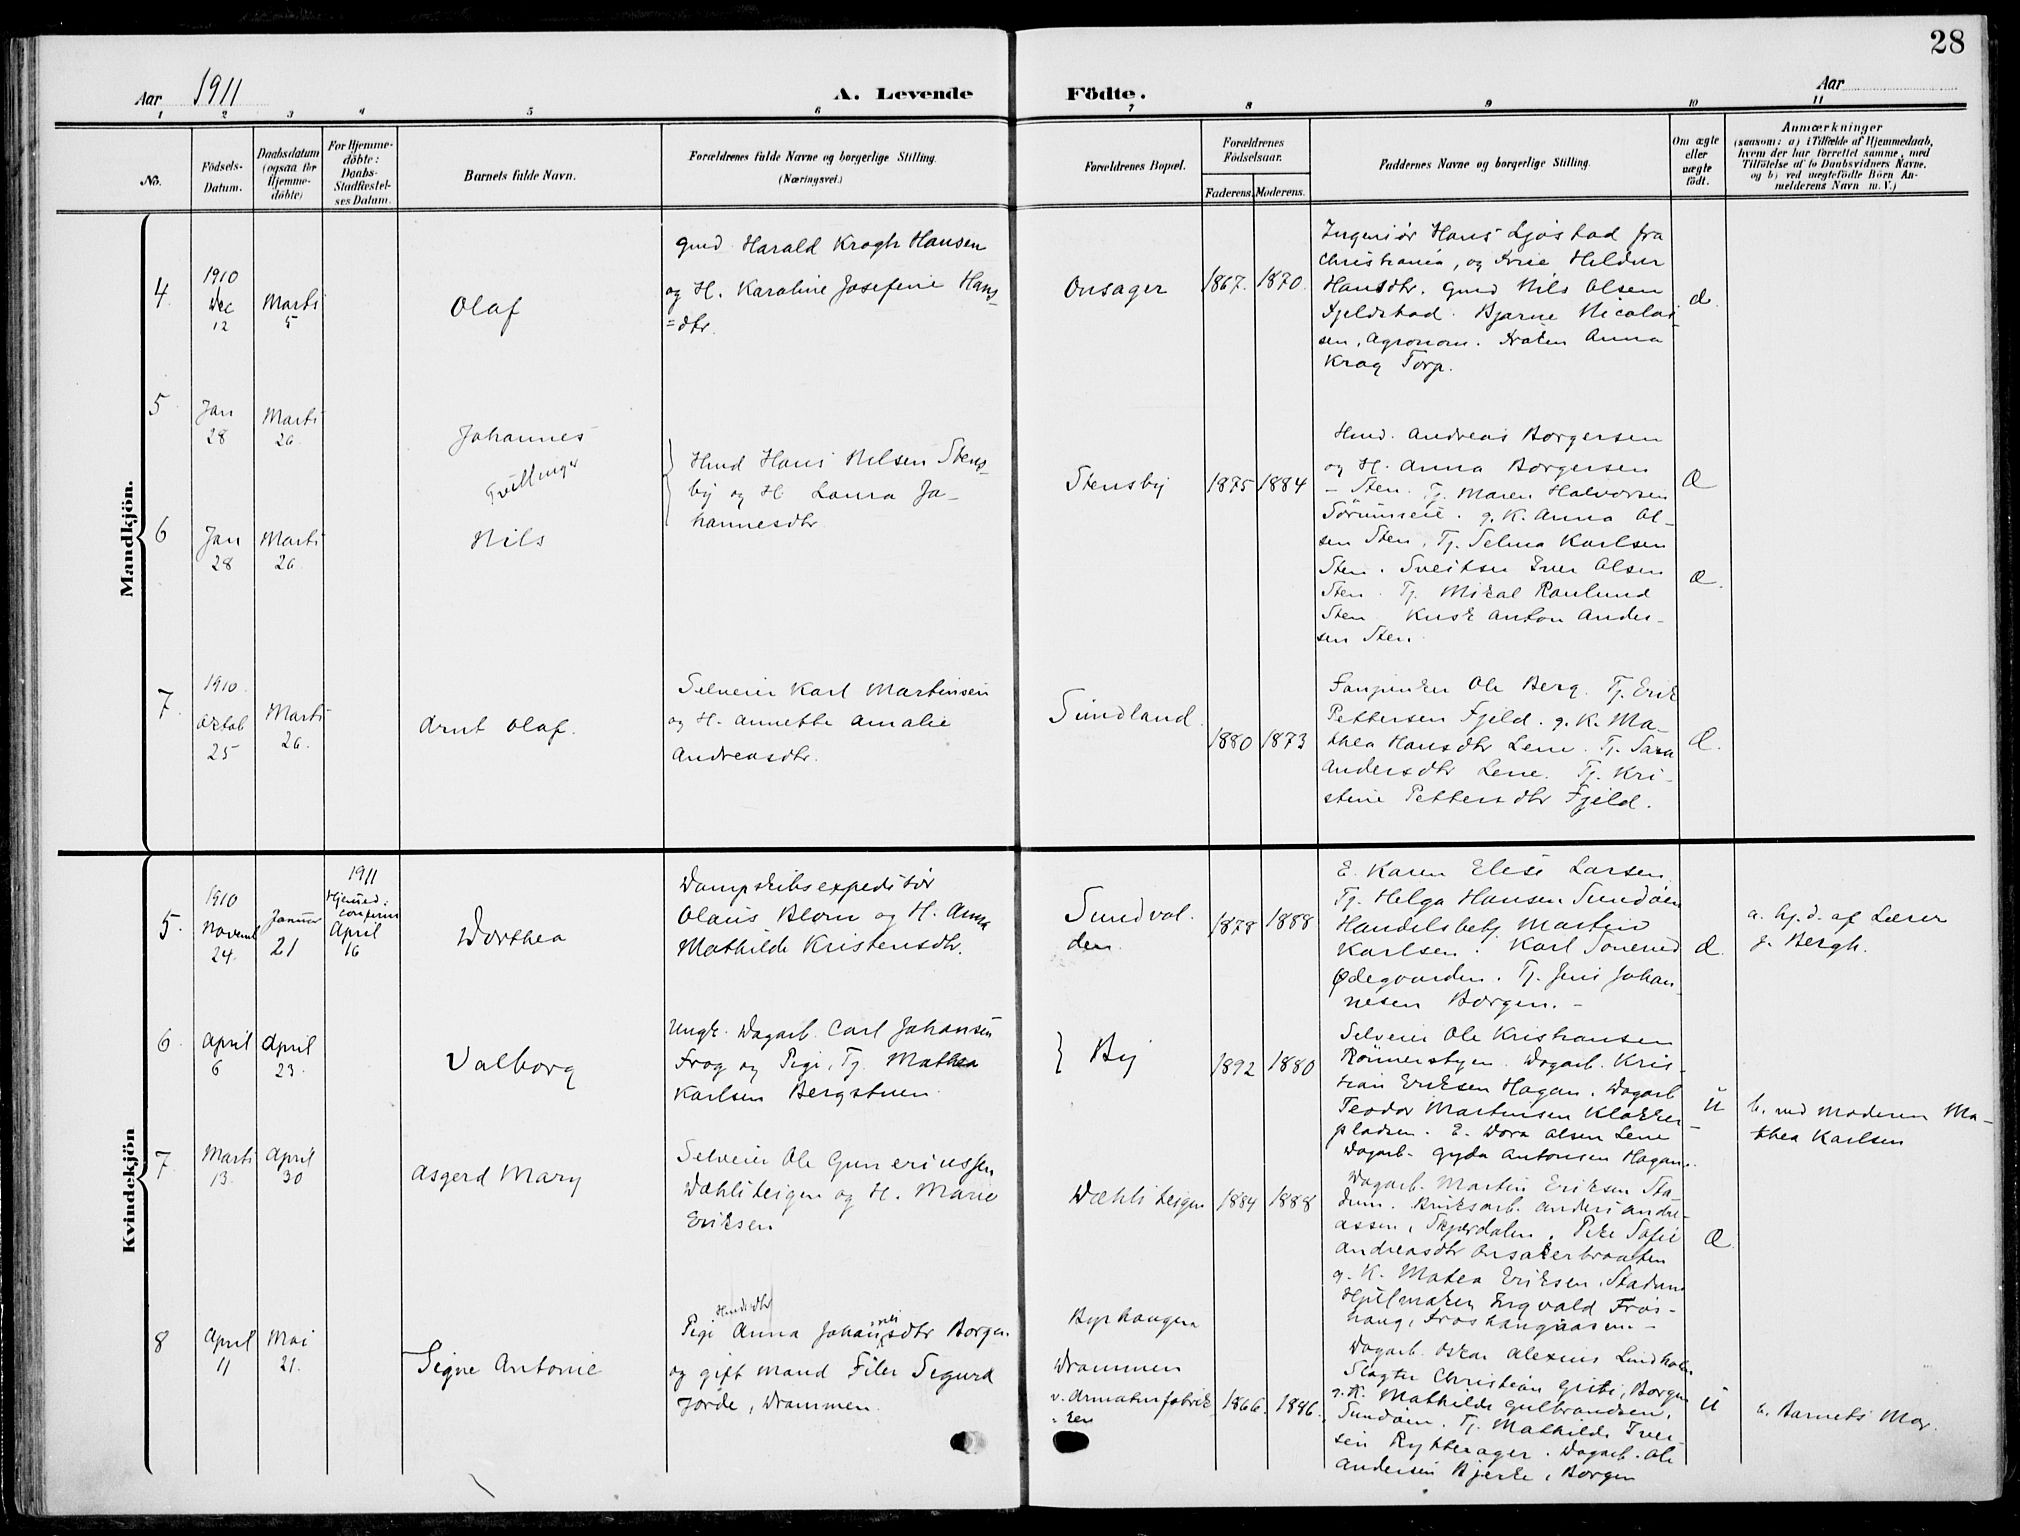 28
Aar 1911
A. Levende Födte.
Aar
1 2 3 4 5 6 7 8 9 10 11
No.
Födsels-Datum.
Daabsdatum (ogsaa for Hjemmedöbte)
For Hjemmedöbte: Daabs-Stadfæstelses Datum.
Barnets fulde Navn.
Forældrenes fulde Navne og borgerlige Stilling. (Næringsvei.)
Forældrenes Bopæl.
Forældrenes Födselsaar.
Faderens. Moderens.
Faddernes Navne og borgerlige Stilling.
Om ægte eller uægte födt.
Anmærkninger
(saasom: a) i Tilfælde af Hjemmedaab,
hvem der har forrettet samme, med
Tilföielse af to Daabsvidners Navne,
og b) ved uægtefödte Börn An-
melderens Navn m. V.)
Mandkjön.
4.
1910
Dec
12
Marts
5
Olaf
Gmd. Harald Kragh Hansen
og H. Karoline Josefine Hans-
=dtr.
Onsager
1867. 1870.
Ingeniør Hans Gjøstad fra
Christiania, og Frue Hildur
Hansdtr. Gmd Nils Olsen
Fjeldstad. Bjarne Nicolai-
sen, Agronom. Frøken Anna
Krag Torp.
Æ.
5.
Jan
28
Marts
26
Johannes
Tvillinger
6
Jan
28
Marts
26.
Nils
Hmd Hans Nilsen Stens-
by og H. Laura Jo-
hannesdtr
Stensby
1875 1884
Hmd. Andreas Borgersen
og H. Anna Borgersen
- Sten. Tj. Maren Halvorsen
Sörumseie. g. K. Anna Ol-
sen Sten, Tj. Selma Karlsen
Sten. Sveitser Iver Olsen
Sten. Tj. Mikal Paulund
Sten Kusk Anton Ander-
sen Sten.
Æ
Æ.
7.
1910.
Oktob
25
Marts
26.
Arnt Olaf.
Selveier Karl Martinsen
og H. Annette Amalie
Andreasdtr.
Sundland.
1880 1873
Ole Berg. Tj. Erik
Pettersen Fjeld. g. K. Ma-
thea Hansdtr Lene. Tj. Sara
Andersdtr Lene. Tj. Kri-
stine Pettersdtr Fjeld.
Æ.
Kvindekjön
5.
1910
Novemb
24.
Januar
21
1911
Hjemmed:
confirm
April
16
Dorthea
Dampskibsexpeditör
Olaus Blom og H. Anna
Mathilde Kristensdtr.
Sundvol-
den.
1878 1888
E. Karen Elise Larsen,
Tj. Helga Hansen Sundöen
Handelsbetj. Martin
Karlsen. Karl Sönerud
Ødegaarden. Tj. Jens Johan-
nesen Borgen. -
Æ.
a. hj. d. af Lærer
J. Bergh.
6.
April
6
April
23.
Valborg
Ungk. Dagarb. Carl Johansen
Frog og Pigi, Tj. Mathea
Karlsen Bergstuen.
By
1892 1880
Selveier Ole Kristiansen
Römerstyen. Dagarb. Kris-
tian Eriksen Hagan. Dagarb
Teodor Martinsen Klokker-
pladsen. E. Dora Olsen Lene
Dagarb. Gyda Antonsen Hagan.
U
b. ved Moderen Ma-
thea Karlsen
7.
Marts
13.
April
30
Asgerd Mary
Selveier Ole Gunerius­sen
Dæhliteigen og H. Marie
Eriksen
Dæhliteigen
1884 1888
Dagarb. Martin Eriksen Sta-
dum. Bruksarb. Anders Andre-
assen, Skjærdalen. Pike Sofie
Andreasdtr Onsakerbraaten
g. K. Matea Eriksen, Stadum
Hjulmaker Ingvald Frös-
haug, Fröshaugaasen -
Æ.
8
April
11
Mai
21.
Signe Antonie
Pigi Anna Johannesdtr Borgen
og gift Mand Filer Sigurd
Jorde, Drammen.
Byrhaugen
Drammen
v. Armaturfabrik-
ken
1866. 1886.
Dagarb. Oskar Alexius Lindholm
Slagter Christian Griti, Borgen
g. K. Mathilde Gulbrandsen,
Sundöen. Tj. Mathilde Iver-
sen Rytterager. Dagarb. Ole
Andersen Bjerke, Borgen
U
b. Barnets Mor.